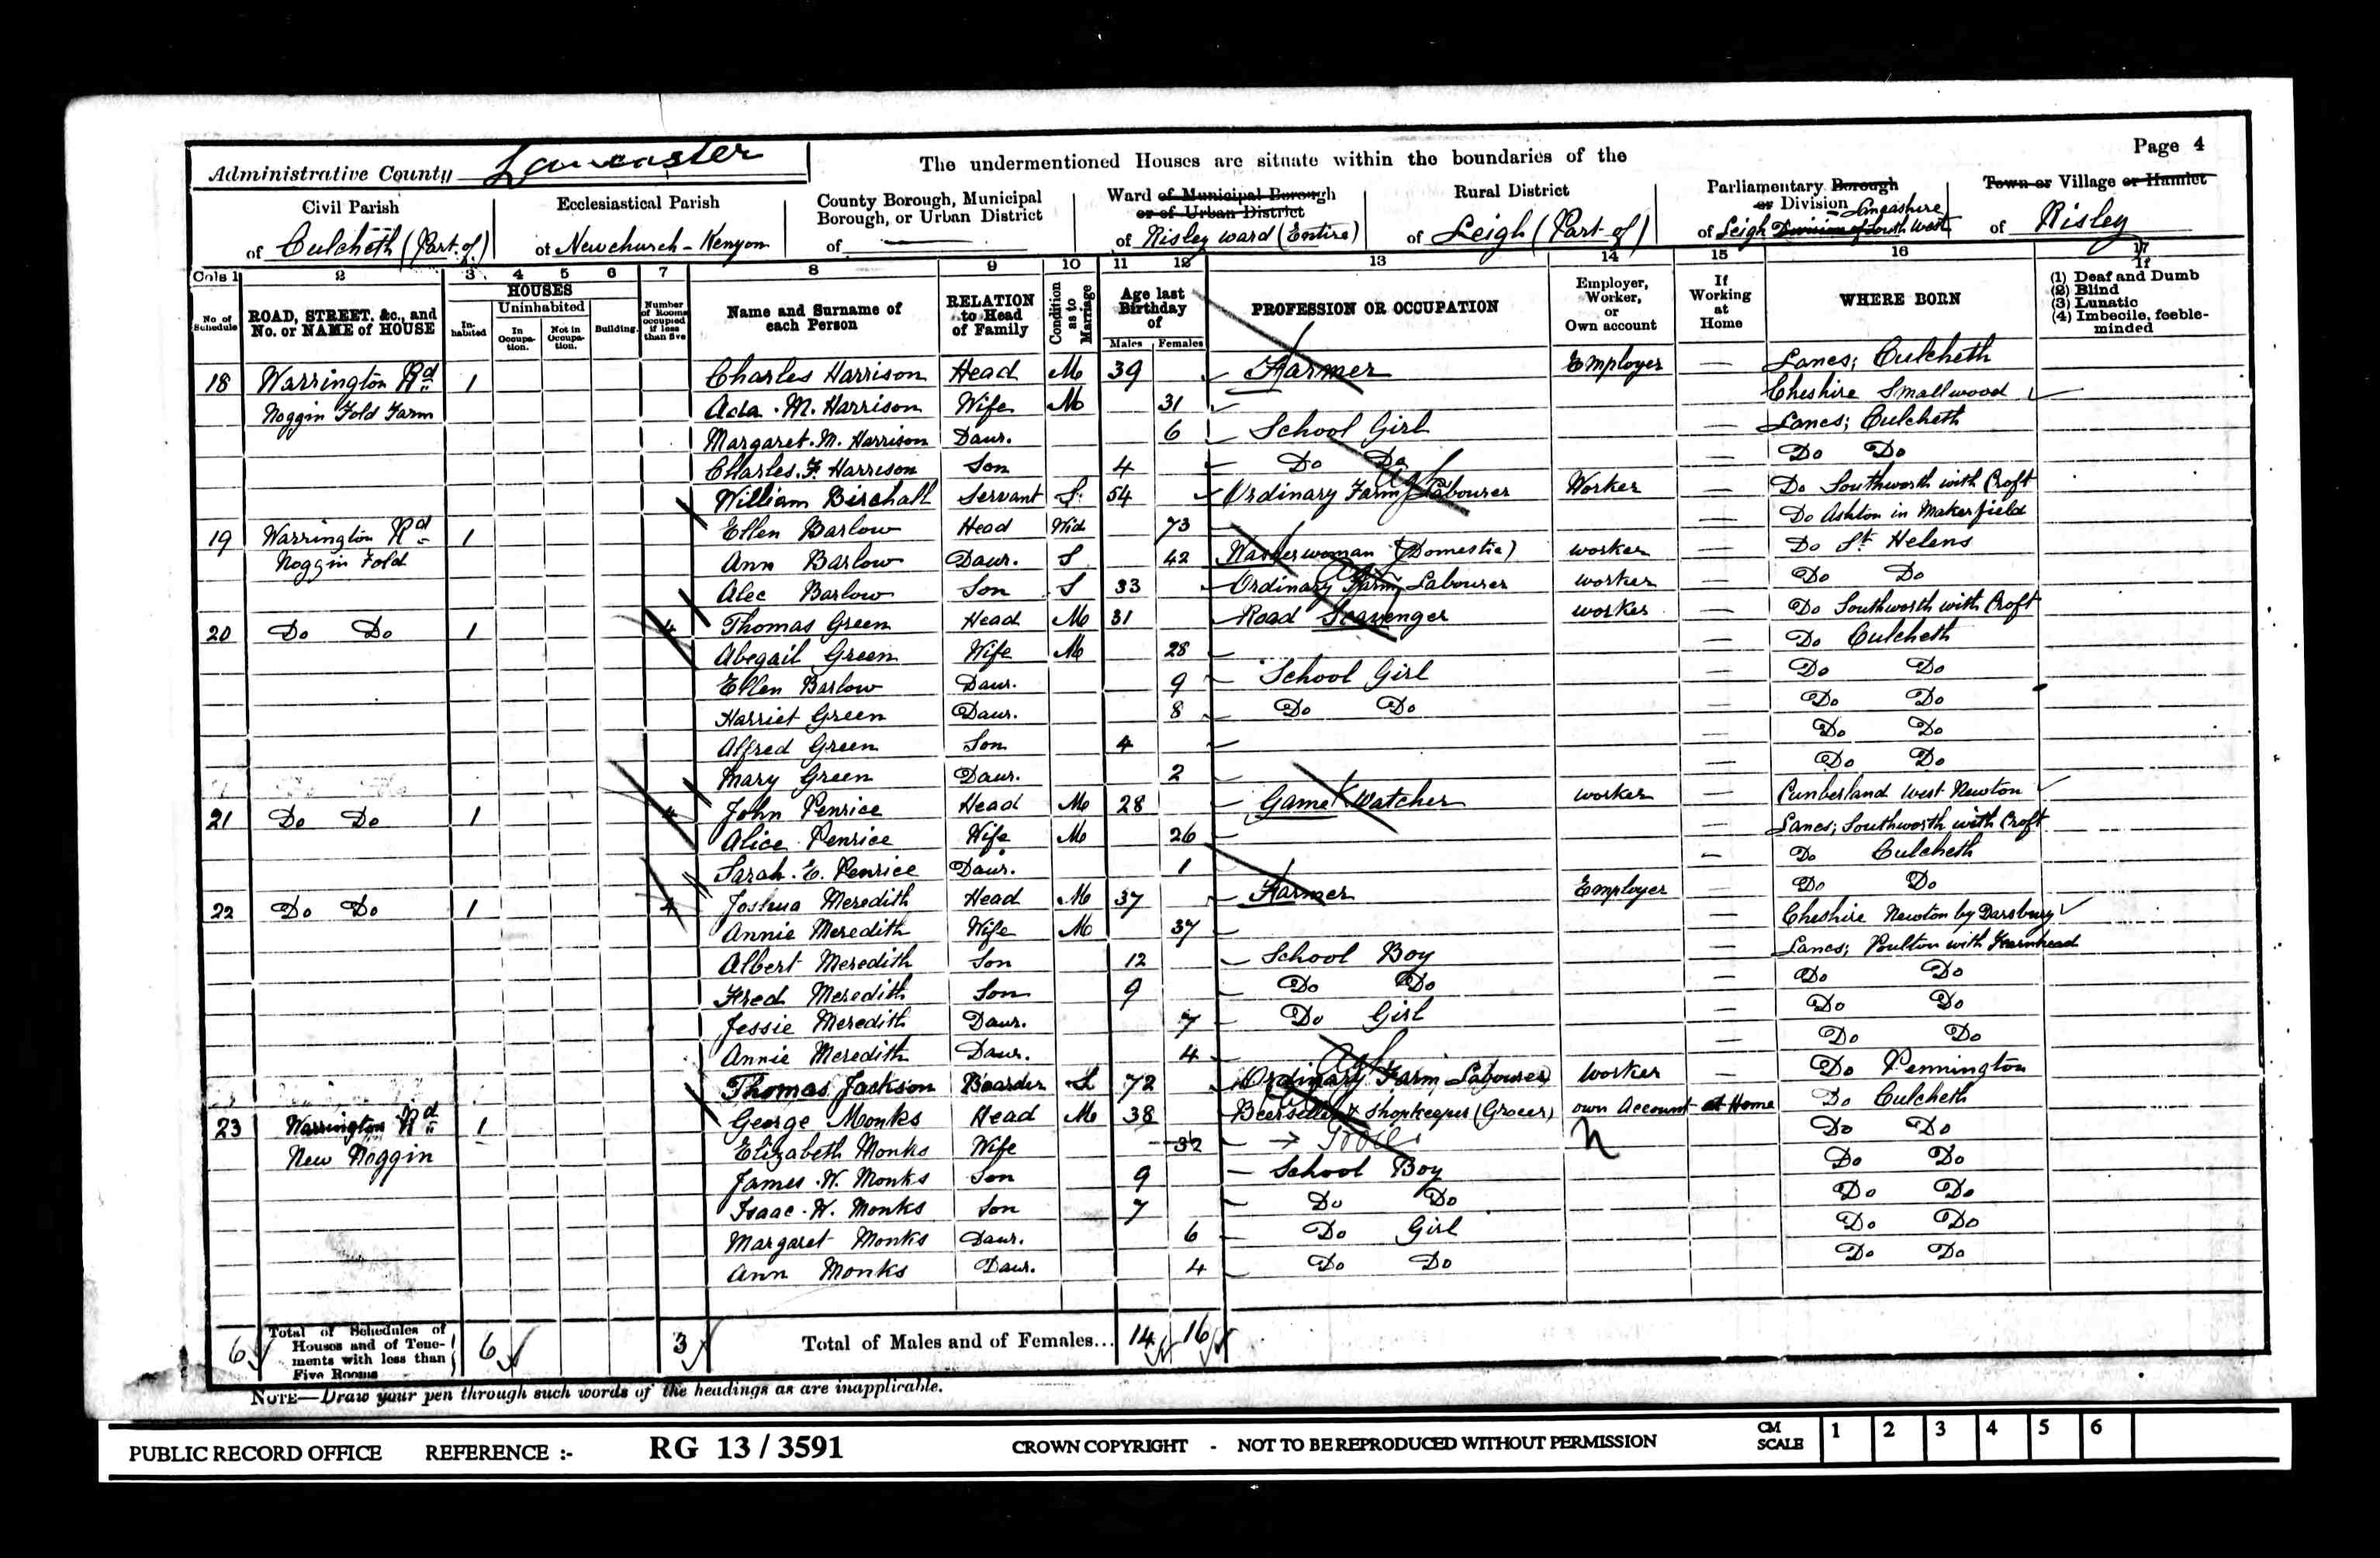 Page 4
Administrative County Lancaster The undermentioned Houses are situate within the boundaries of the
Civil Parish of Culcheth (Part of)
Ecclesiastical Parish of Newchurch-Kenyon
County Borough, Municipal Borough, or Urban District of —
Ward of Municipal Borough or of Urban District of Risley ward (Entire)
Rural District of Leigh (Part of)
Parliamentary Borough or Division of Leigh Division of South West Lancashire
Town or Village or Hamlet of Risley
Cols 1 2 3 4 5 6 7 8 9 10 11 12 13 14 15 16 17
No. of Schedule
ROAD, STREET, &c., and No. or NAME of HOUSE
HOUSES
Inhabited
Uninhabited
In Occupation.
Not in Occupation.
Building.
Number of Rooms occupied if less than five
Name and Surname of each Person
RELATION to Head of Family
Condition as to Marriage
Age last Birthday of
Males Females
PROFESSION OR OCCUPATION
Employer, Worker, or Own account
If Working at Home
WHERE BORN
If
(1) Deaf and Dumb
(2) Blind
(3) Lunatic
(4) Imbecile, feeble-minded
18 Warrington Rd 1 Charles Harrison Head M 39 Farmer Employer — Lancs; Culcheth
Noggin Fold Farm Ada . M. Harrison Wife M 31 Cheshire Smallwood
Margaret. M. Harrison Daur. 6 School Girl — Lancs; Culcheth
Charles. F. Harrison Son 4 Do Do — Do Do
William Birchall Servant S. 54 Ordinary Farm Labourer Ag Worker — Do Southworth with Croft
19 Warrington Rd 1 Ellen Barlow Head Wid 73 — Do Ashton in Makerfield
Noggin Fold Ann Barlow Daur. S 42 Washerwoman (Domestic) worker — Do St Helens
Alec Barlow Son S 33 Ordinary Farm Labourer worker — Do Do
20 Do Do 1 4 Thomas Green Head M 31 Road Scavenger worker — Do Southworth with Croft
Abegail Green Wife M 28 — Do Culcheth
Ellen Barlow Daur. 9 School Girl — Do Do
Harriet Green Daur. 8 Do Do — Do Do
Alfred Green Son 4 — Do Do
Mary Green Daur. 2 — Do Do
21 Do Do 1 4 John Penrice Head M 28 Game Watcher worker — Cumberland West Newton
Alice Penrice Wife M 26 — Lancs; Southworth with Croft
Sarah. E. Penrice Daur. 1 — Do Culcheth
22 Do Do 1 4 Joshua Meredith Head M 37 Farmer Employer — Do Do
Annie Meredith Wife M 37 — Cheshire Newton by Darsbury
Albert Meredith Son 12 School Boy — Lancs; Poulton with Fearnhead
Fred Meredith Son 9 Do Do — Do Do
Jessie Meredith Daur. 7 Do Girl — Do Do
Annie Meredith Daur. 4 — Do Do
Thomas Jackson Boarder S 72 Ordinary Farm Labourer Ag worker — Do Pennington
23 Warrington Rd 1 George Monks Head M 38 Beerseller & Shopkeeper (Grocer) own Account at Home Do Culcheth
New Noggin Elizabeth Monks Wife 32 Do Do
James .W. Monks Son 9 School Boy Do Do
Isaac .W. Monks Son 7 Do Do Do Do
Margaret Monks Daur. 6 Do Girl Do Do
Ann Monks Daur. 4 Do Do Do Do
6 Total of Schedules of Houses and of Tenements with less than Five Rooms 6 3 Total of Males and of Females... 14 16
NOTE—Draw your pen through such words of the headings as are inapplicable.
PUBLIC RECORD OFFICE REFERENCE :- RG 13 / 3591 CROWN COPYRIGHT - NOT TO BE REPRODUCED WITHOUT PERMISSION CM SCALE 1 2 3 4 5 6